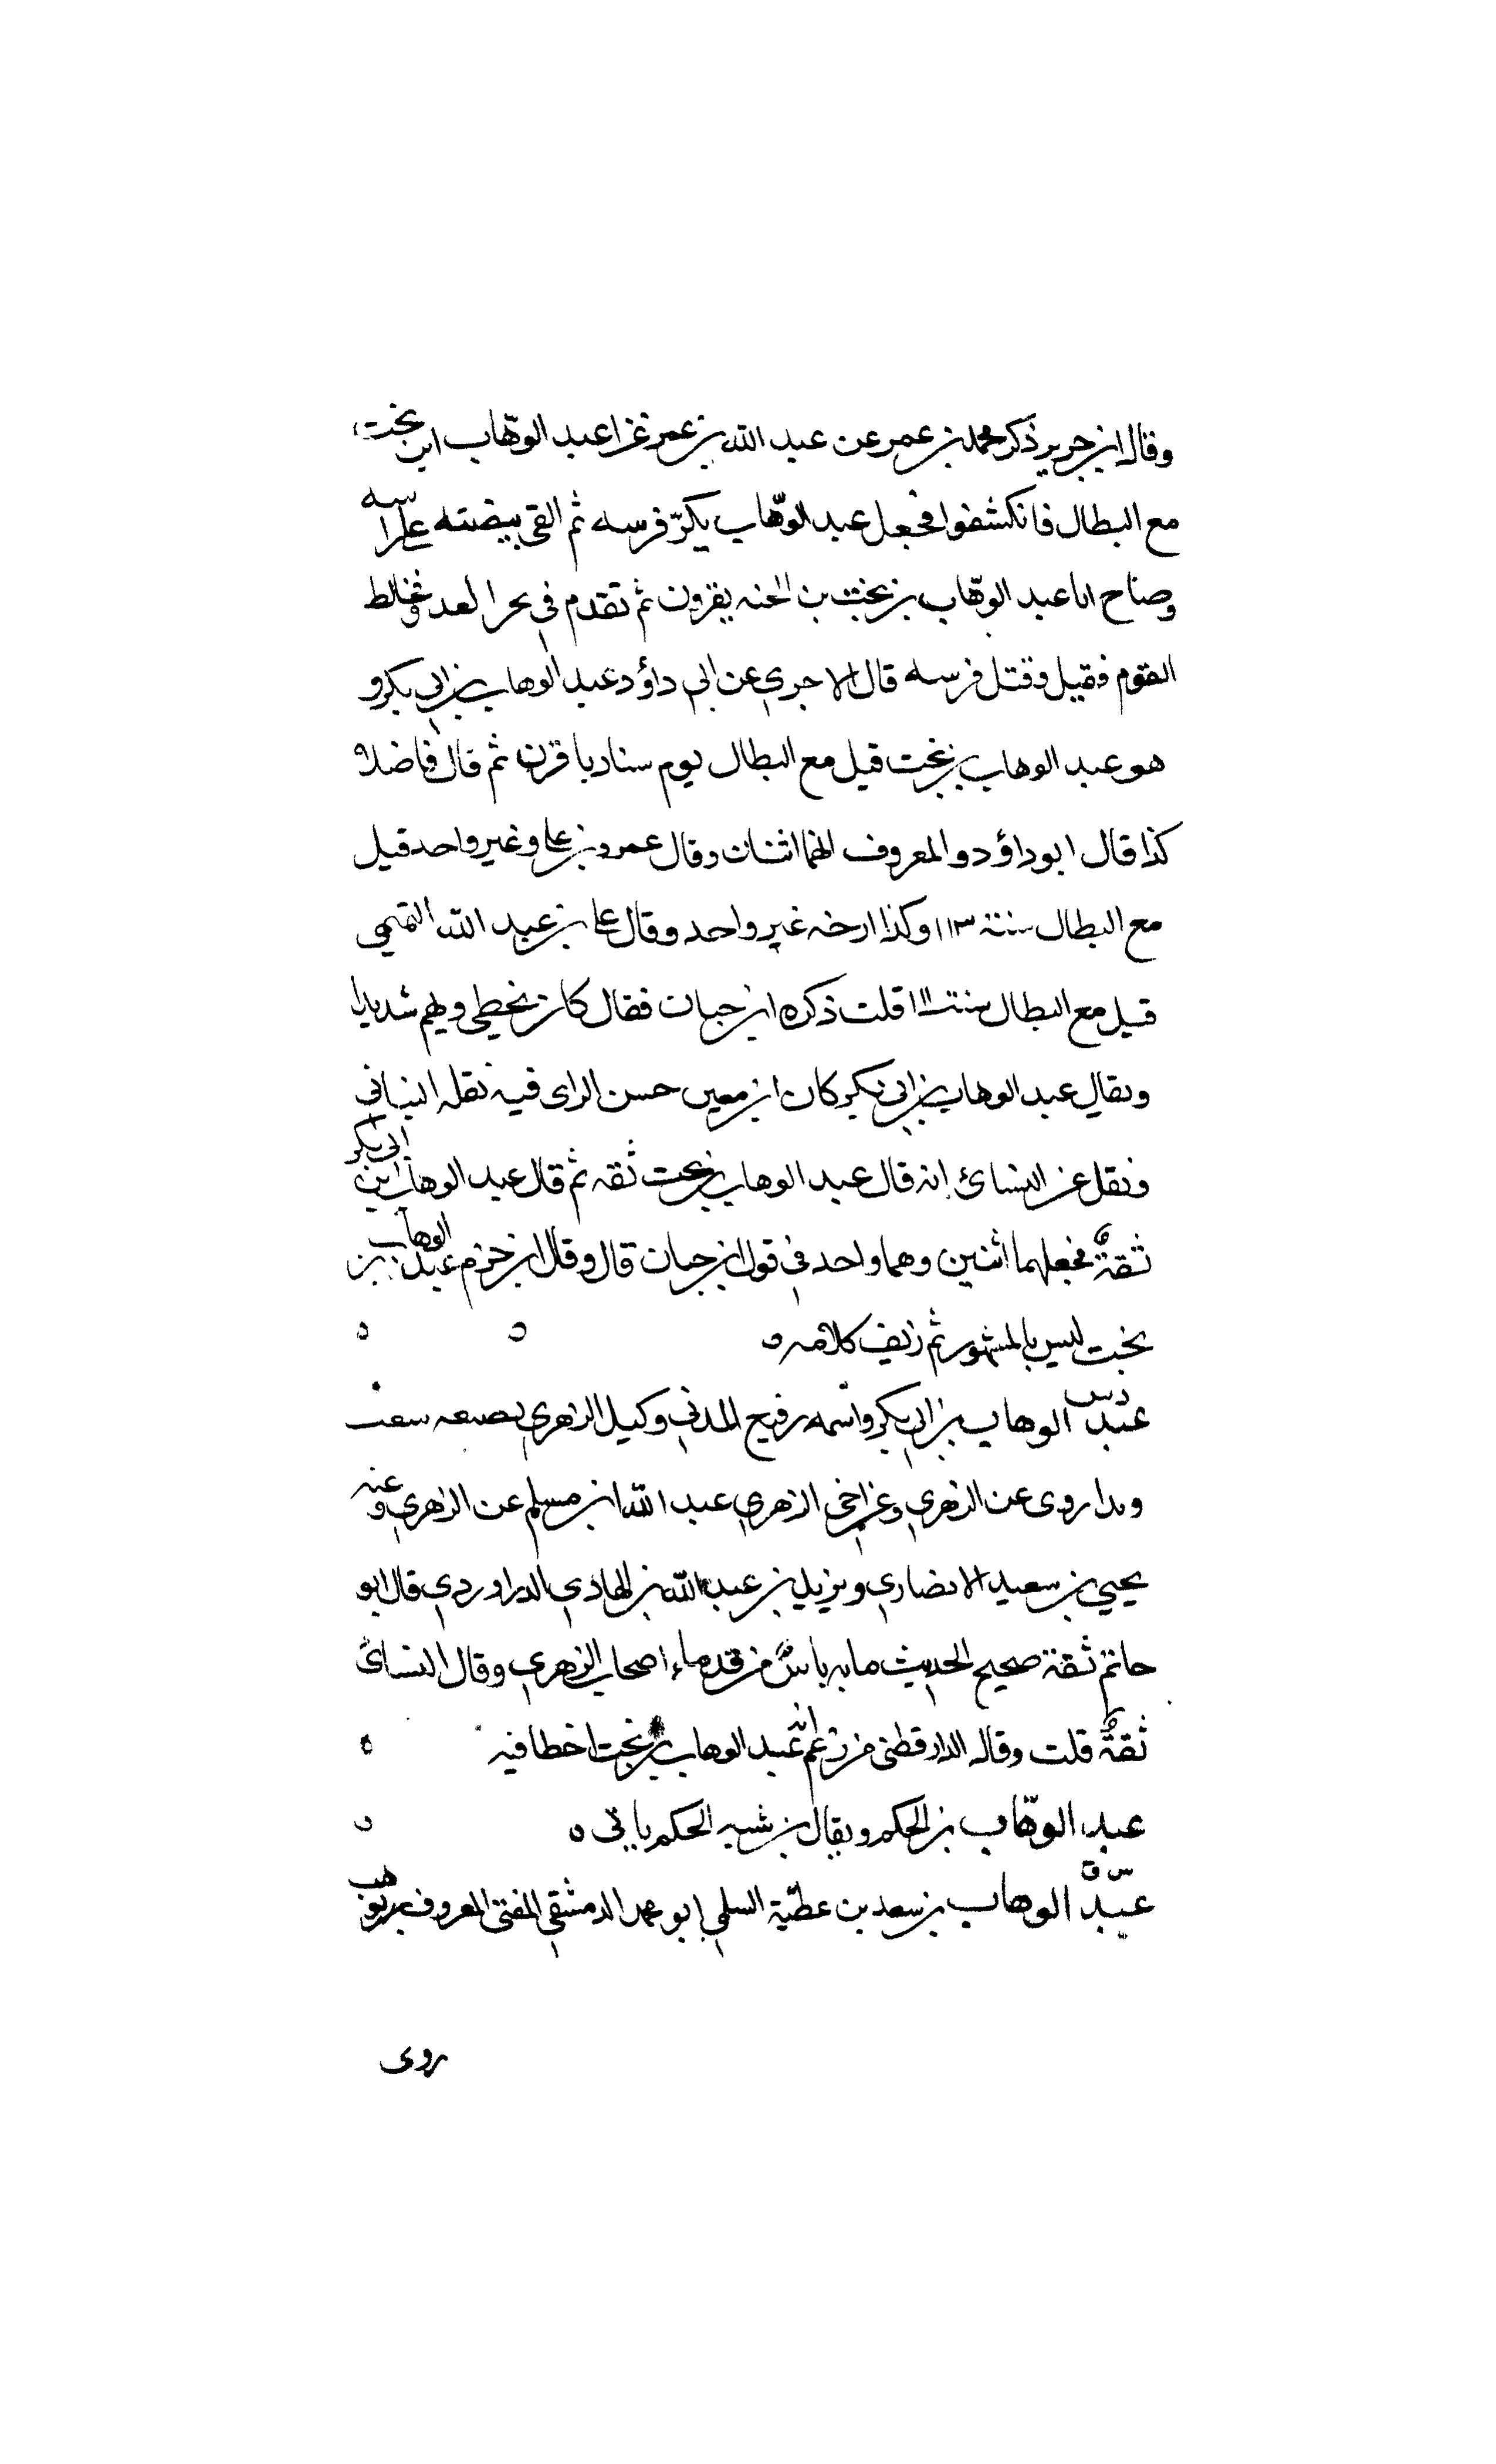 وقال ابن جرير ذكر محمد بن عمر عن عبد الله بن عمر غزا عبد الوهّاب ابن بخت
مع البطال فانكشفوا فجعل عبد الوهّاب يكرّ فرسه ثم القى بيضته على راسه
وصاح انا عبد الوهّاب بن بخت من الجنه يفرون ثم تقدم في نحر العدو فخالط
القوم فقيل وقتل فرسه قال الاجري عن ابي داؤد عبد الوهاب بن ابي بكر و
هو عبد الوهاب بن بخت قيل مع البطال يوم سناديا قرن ثم قال فاضلا
كذا قال ابو داؤد والمعروف انهما اثنان وقال عمرو بن علي وغير واحد قيل
مع البطال سنة ١١٣ وكذا ارخه غير واحد وقال علي بن عبد الله التميمي
قيل مع البطال سنة ١١١ قلت ذكره ابن حبان فقال كان يخطي ويهم شديدا
ويقال عبد الوهاب بن ابي بكر كان ابن معين حسن الراى فيه نقله البناني
ونقل عن النسائ انه قال عبد الوهاب بن بخت ثقه ثم قال عبد الوهاب بن ابي بكر
ثقةٌ فجعلهما اثنين وهما واحد في قول ابن حبان قال وقال ابن حزم عبد الوهاب بن
بخت ليس بالمشهور ثم زيف كلامه ٥
د س عبد الوهاب بن ابي بكر واسمه رفيع المدني وكيل الزهري
روى عن الزهري وعن اخي الزهري عبد الله ابن مسلم عن الزهري وعنه
يحيي بن سعيد الانصاري ويزيد بن عبد الله بن الهادي الدراوردي قال ابو
حاتم ثقة صحيح الحديث ما به باسٌ من قدماء اصحاب الزهري وقال النسائ
ثقةٌ قلت وقال الدارقطني من زعم انه عبد الوهاب بن بخت اخطا فيه
عبد الوهّاب بن الحكم ويقال بن شبيه الحكم ياتي ٥
س ق عبد الوهاب بن سعد بن عطيّة السلمي ابو محمد الدمشقي المفتي المعروف بوهب
روى